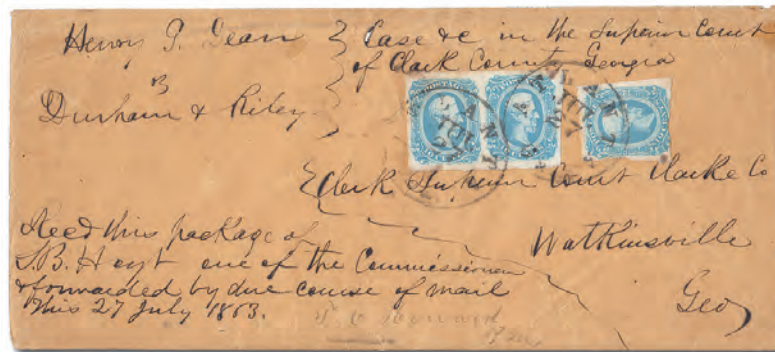 Henry P. Dean } Case &c in the Superior Court
of Clark County Georgia
vs
Durham & Riley
Clerk Superior Court Clarke Co
Watkinsville
Geo
Recd this package of
S.B. Hoyt one of the Commissioners
& forwarded by due course of mail
this 27 July 1863.